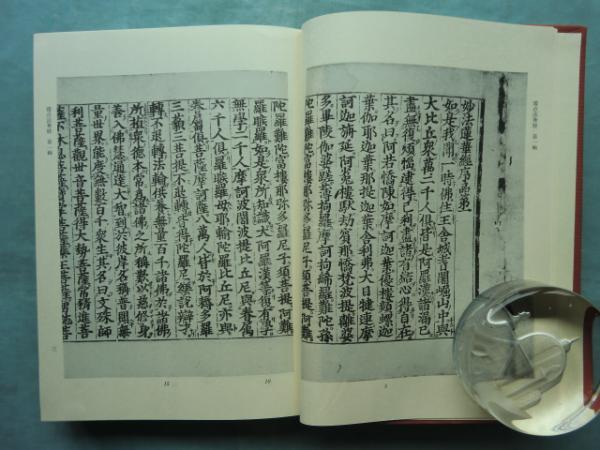 妙法蓮華經序品第一
如是我聞一時佛住王舍城耆闍崛山中與
大比丘衆萬二千人俱皆是阿羅漢諸漏已
盡無復煩惱逮得己利盡諸有結心得自在
其名曰阿若憍陳如摩訶迦葉優樓頻螺迦
葉伽耶迦葉那提迦葉舍利弗大目揵連摩
訶迦旃延阿㝹樓馱劫賓那憍梵波提離婆
多畢陵伽婆蹉薄拘羅摩訶拘絺羅難陀孫
陀羅難陀富樓那彌多羅尼子須菩提阿難
陀羅難陀富樓那彌多羅尼子須菩提阿難
羅睺羅如是衆所知識大阿羅漢等復有學
無學二千人摩訶波闍波提比丘尼與眷属
六千人俱羅睺羅母耶輸陀羅比丘尼亦與
眷属俱菩薩摩訶薩八萬人皆於阿耨多羅
三藐三菩提不退轉皆得陀羅尼樂說辯才
轉不退轉法輪供養無量百千諸佛於諸佛
所殖衆德本常爲諸佛之所稱歎以慈修身
善入佛慧通達大智到於彼岸名稱普聞無
量世界能度無數百千衆生其名曰文殊師
利菩薩觀世音菩薩得大勢菩薩常精進菩
薩不休息菩薩寶掌菩薩藥王菩薩勇施菩